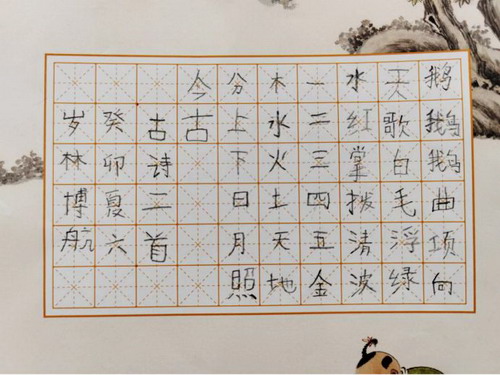 鹅鹅鹅曲项向
天歌白毛浮绿
水红掌拨清波
一二三四五金
木水火土天地
分上下日月照
今古
古诗二首
癸卯夏六
岁林博航